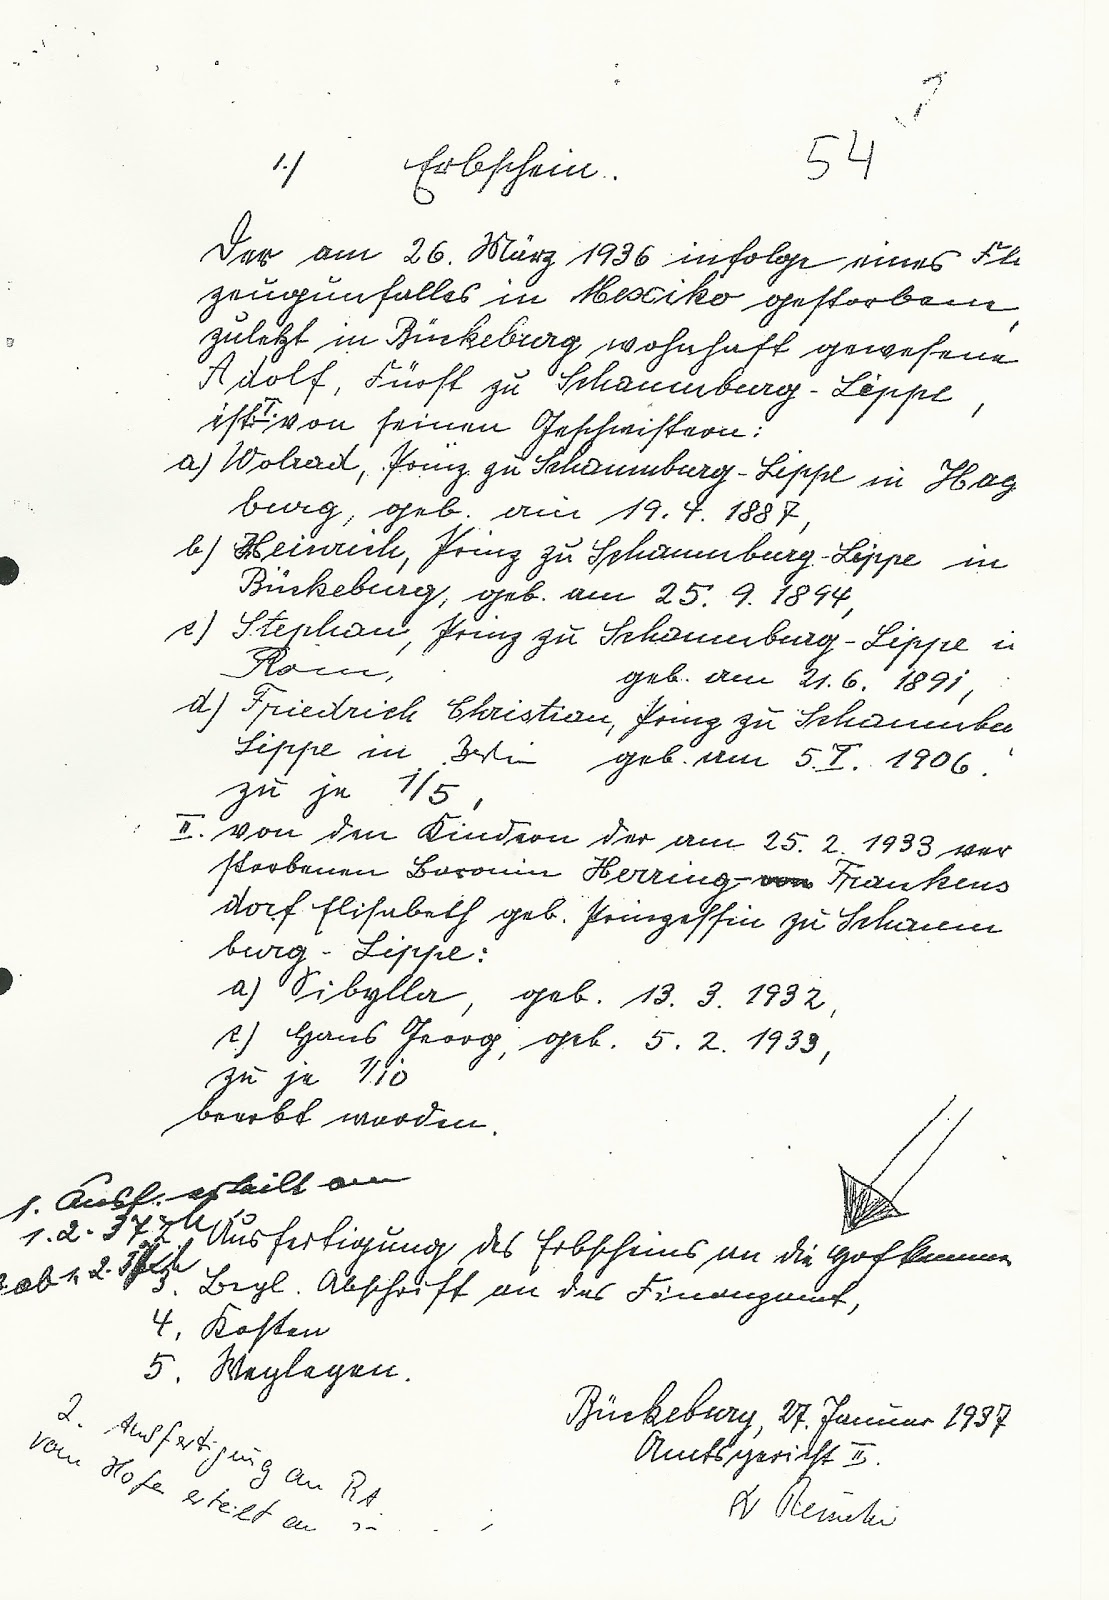 54
1.) Erbschein.
Der am 26. März 1936 infolge eines Flu
zeugunfalles in Mexiko gestorbene,
zuletzt in Bückeburg wohnhaft gewesene
Adolf, Fürst zu Schaumburg-Lippe,
ist I. von seinen Geschwistern:
a) Wolrad, Prinz zu Schaumburg-Lippe in Hag
burg, geb. am 19. 4. 1887,
b) Heinrich, Prinz zu Schaumburg-Lippe in
Bückeburg, geb. am 25. 9. 1894,
c) Stephan, Prinz zu Schaumburg-Lippe i
Rom, geb. am 21. 6. 1891,
d) Friedrich Christian, Prinz zu Schaumbu
Lippe in Berlin geb. am 5. I. 1906.
zu je 1/5,
II. von den Kindern der am 25. 2. 1933 ver
storbenen Baronin Herring von Frankens
dorf Elisabeth geb. Prinzessin zu Schaum
burg-Lippe:
a) Sibylla, geb. 13. 3. 1932,
c) Hans Georg, geb. 5. 2. 1933,
zu je 1/10
beerbt worden.
1. Ausf. erteilt am
1. 2. 37
Ausfertigung des Erbscheins an die Hofkamme
ab 1. 2.
3. Begl. Abschrift an das Finanzamt,
4. Kosten
5. Weglegen.
Bückeburg, 27. Januar 1937
Amtsgericht II.
2. Ausfertigung an RA
vom Hofe erteilt an